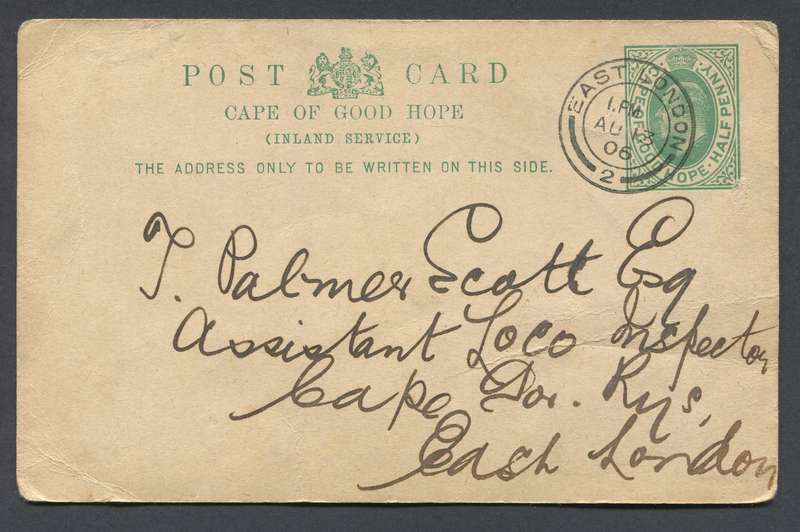 POST CARD
CAPE OF GOOD HOPE
(INLAND SERVICE)
THE ADDRESS ONLY TO BE WRITTEN ON THIS SIDE.
EAST LONDON
1 PM
AU
06
2
HOPE · HALF PENNY
T. Palmer Scott Esq
Assistant Loco Inspector
Cape Gov. Rys,
East London